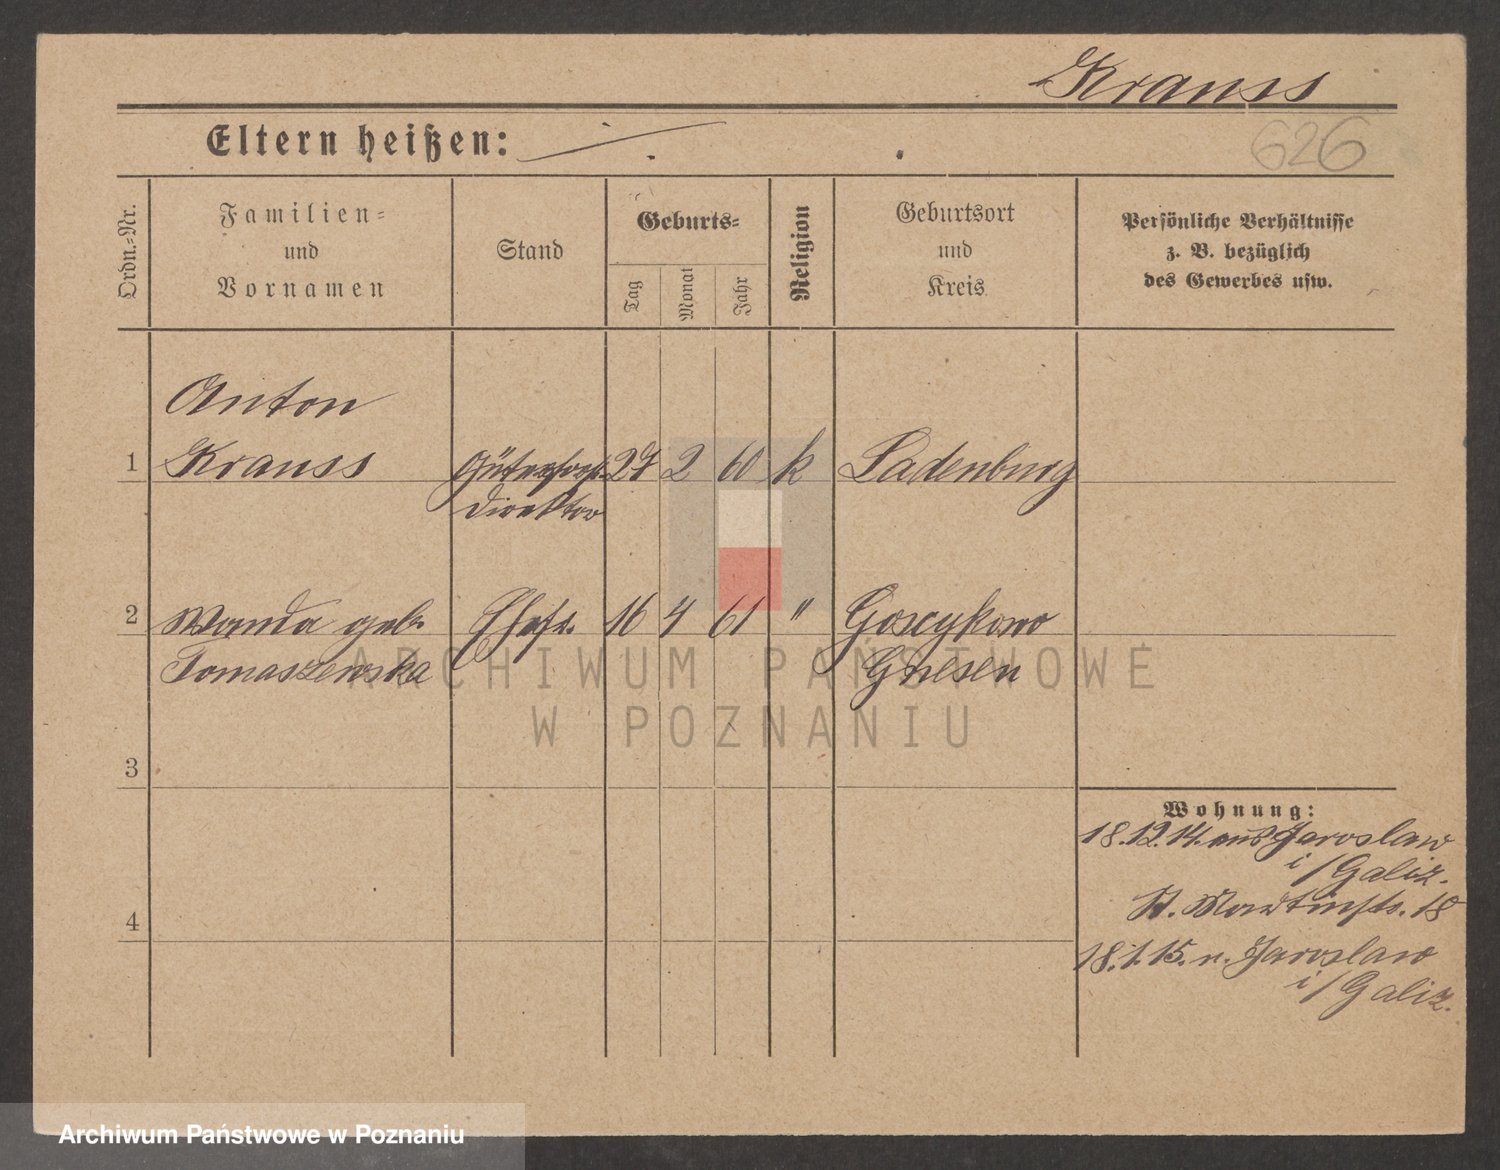 Krauss
Eltern heißen:
626
Ordn.-Nr.
Familien-
und
Vornamen
Stand
Geburts-
Tag
Monat
Jahr
Religion
Geburtsort
und
Kreis
Persönliche Verhältnisse
z. B. bezüglich
des Gewerbes usw.
Anton
1 Krauss 27 2 60 k Ladenburg
direktor
2 Wanda geb. Ehefr. 16 4 61 " Goscykowo
Tomaszewska Gnesen
ARCHIWUM PAŃSTWOWE
W POZNANIU
3
Wohnung:
18.12.14. aus Jaroslaw
i/Galiz.
St. Martinstr. 18
4
18.1.15. n. Jaroslaw
i/Galiz.
Archiwum Państwowe w Poznaniu